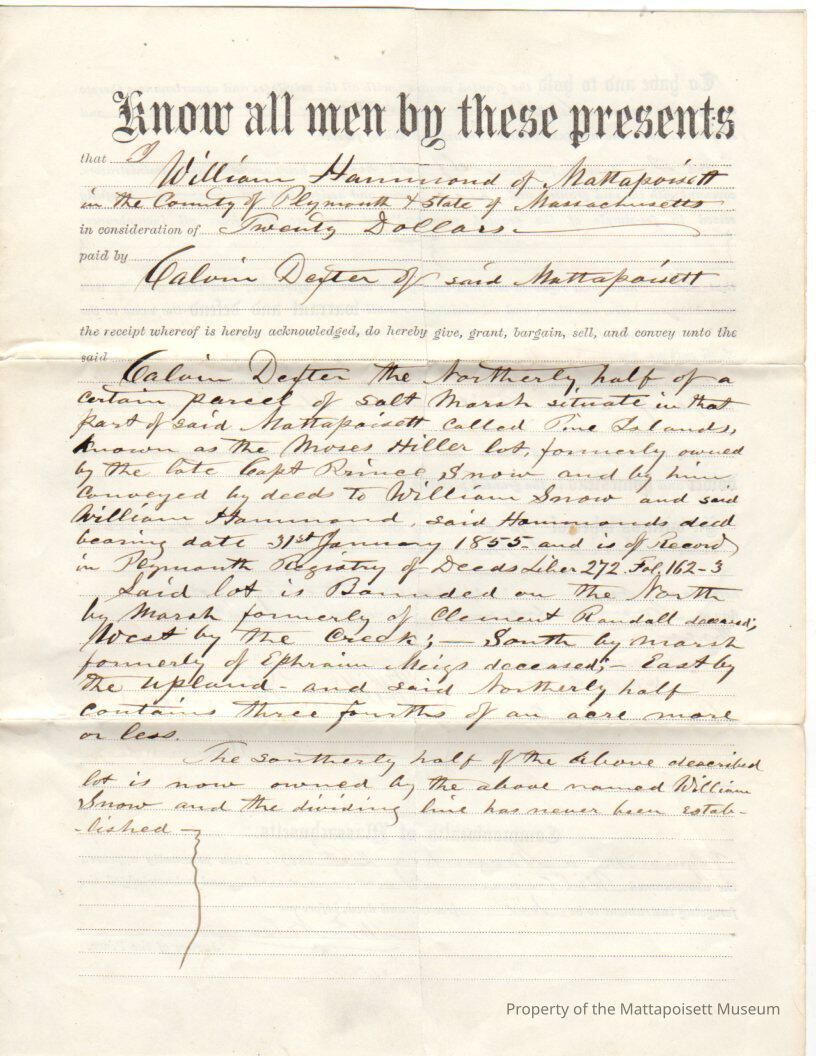 Know all men by these presents
that I
William Hammond of Mattapoisett
in the County of Plymouth & State of Massachusetts
in consideration of Twenty Dollars
paid by
Calvin Dexter of said Mattapoisett
the receipt whereof is hereby acknowledged, do hereby give, grant, bargain, sell, and convey unto the
said
Calvin Dexter the Northerly half of a
certain parcel of salt Marsh situate in that
part of said Mattapoisett called Pine Islands,
known as the Moses Hiller lot, formerly owned
by the late Capt Prince Snow and by him
conveyed by deeds to William Snow and said
William Hammond, said Hammonds deed
bearing date 31st January 1855 and is of Record
in Plymouth Registry of Deeds Liber 272 Fol. 162-3
Said lot is Bounded on the North
by Marsh formerly of Clement Randall deceased;
West by the Creek; — South by marsh
formerly of Ephraim Meigs deceased; - East by
the upland - and said Northerly half
contains three fourths of an acre more
or less.
The southerly half of the above described
lot is now owned by the above named William
Snow and the dividing line has never been estab-
-lished
Property of the Mattapoisett Museum